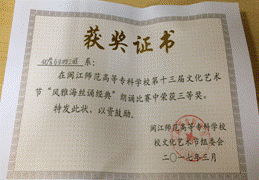 获奖证书
系:
在闽江师范高等专科学校第十三届文化艺术
节“风雅海丝诵经典”朗诵比赛中荣获三等奖。
特发此状,以资鼓励。
闽江师范高等专科学校
校文化艺术节组委会
二〇一七年三月